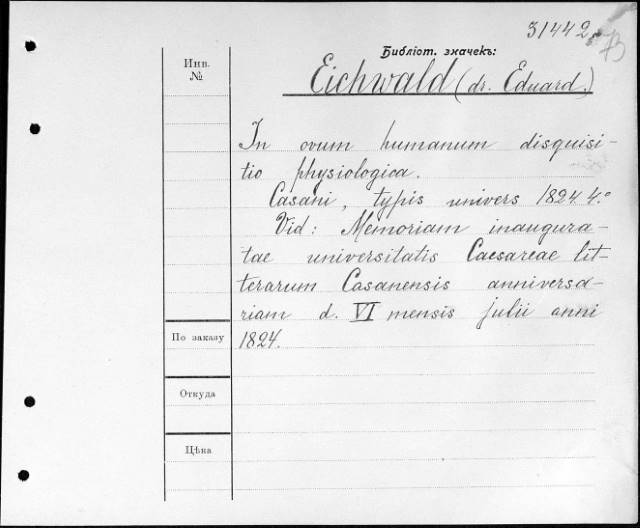 31442
73
Библіот. значекъ:
Инв.
№
Eichwald (dr. Eduard.)
In ovum humanum disquisi-
tio physiologica.
Casani, typis univers 1824. 4.°
Vid: Memoriam inaugura-
tae universitatis Caesareae lit-
terarum Casanensis anniversa-
riam d. VI mensis julii anni
По заказу
1824.
Откуда
Цѣна